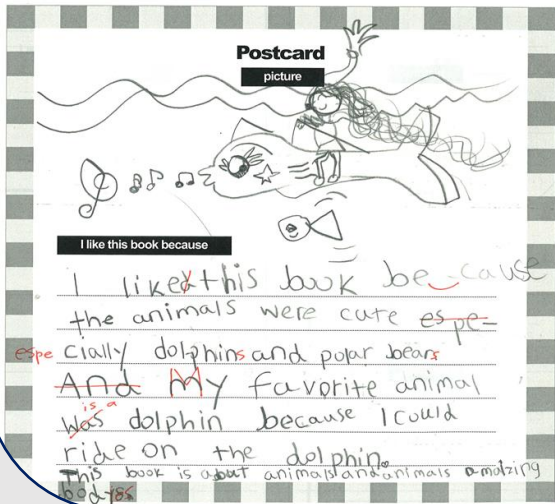 Postcard
picture
I like this book because
I liked this book be cause
the animals were cute es pe-
espe cially dolphins and polar bears
And My favorite animal
is a
was dolphin because I could
ride on the dolphin.
This book is about animals and animals amaizing
bodyes